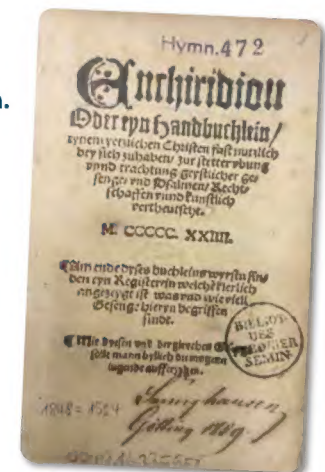 n.
Hymn.472
Enchiridion
Oder eyn Handbuchlein/
eynem yetzlichen Christen fast nutzlich
bey sich zuhaben/ zur stetter vbung
vnnd trachtung geystlicher ge-
senge vnd Psalmen/ Recht-
schaffen vnnd kunstlich
vertheutscht.
M. CCCCC. XXIIII.
Am ende dyses buchleins wyrstu fin-
den eyn Register/ yn welchē klerlich
angezeygt ist was vnd wie viell
Gesenge hieryn begriffen
sindt.
Mit dysen vnd der gleychen Ge-
senge sollt mann byllich die yungen
iugendt aufferzyhen.
BIBLIOT.
DES
PREDIGER
SEMIN.
1848 = 1524